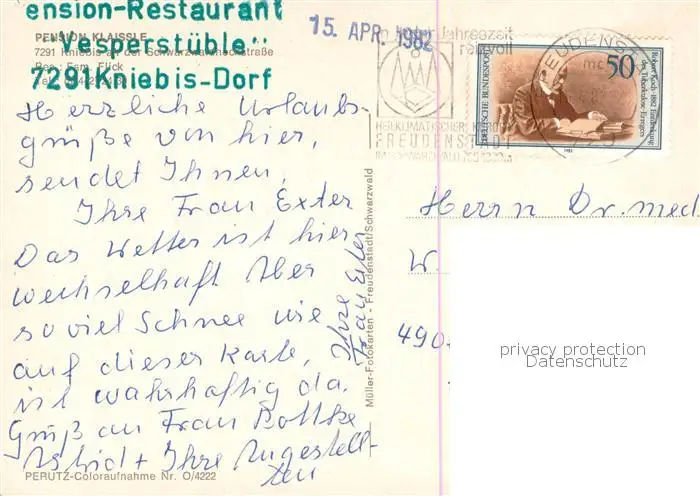 ension-Restaurant
"Vesperstüble"
729 Kniebis-Dorf
PENSION KLAISSLE
7291 Kniebis an der Schwarzwaldhochstraße
Bes.: Fam. Flick
15. APR. 1982
zu jeder Jahreszeit
reizvoll
HEILKLIMATISCHER KURORT
FREUDENSTADT
FREUDENST
DEUTSCHE BUNDESPOST
50
Robert Koch · 1882 Entdeckung
des Tuberkulose-Erregers
1982
Herzliche Urlaubs-
grüße von hier,
sendet Ihnen,
Ihre Frau Exter
Das Wetter ist hier
wechselhaft Aber
so viel Schnee wie
auf dieser Karte,
ist wahrhaftig da.
Gruß an Frau Bottke
Astrid + Ihre Angestell-
ten
Ihre
Frau Exter
Müller-Fotokarten - Freudenstadt/Schwarzwald
PERUTZ-Coloraufnahme Nr. O/4222
Herrn Dr. med.
W.
490
privacy protection
Datenschutz